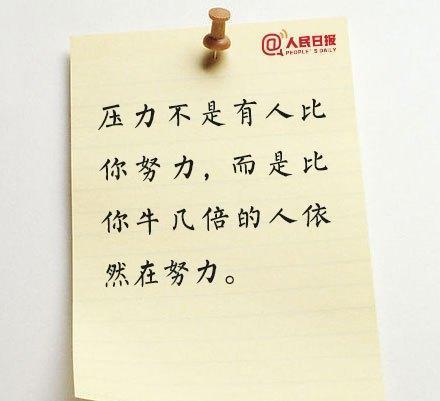 @人民日报
PEOPLE'S DAILY
压力不是有人比
你努力，而是比
你牛几倍的人依
然在努力。